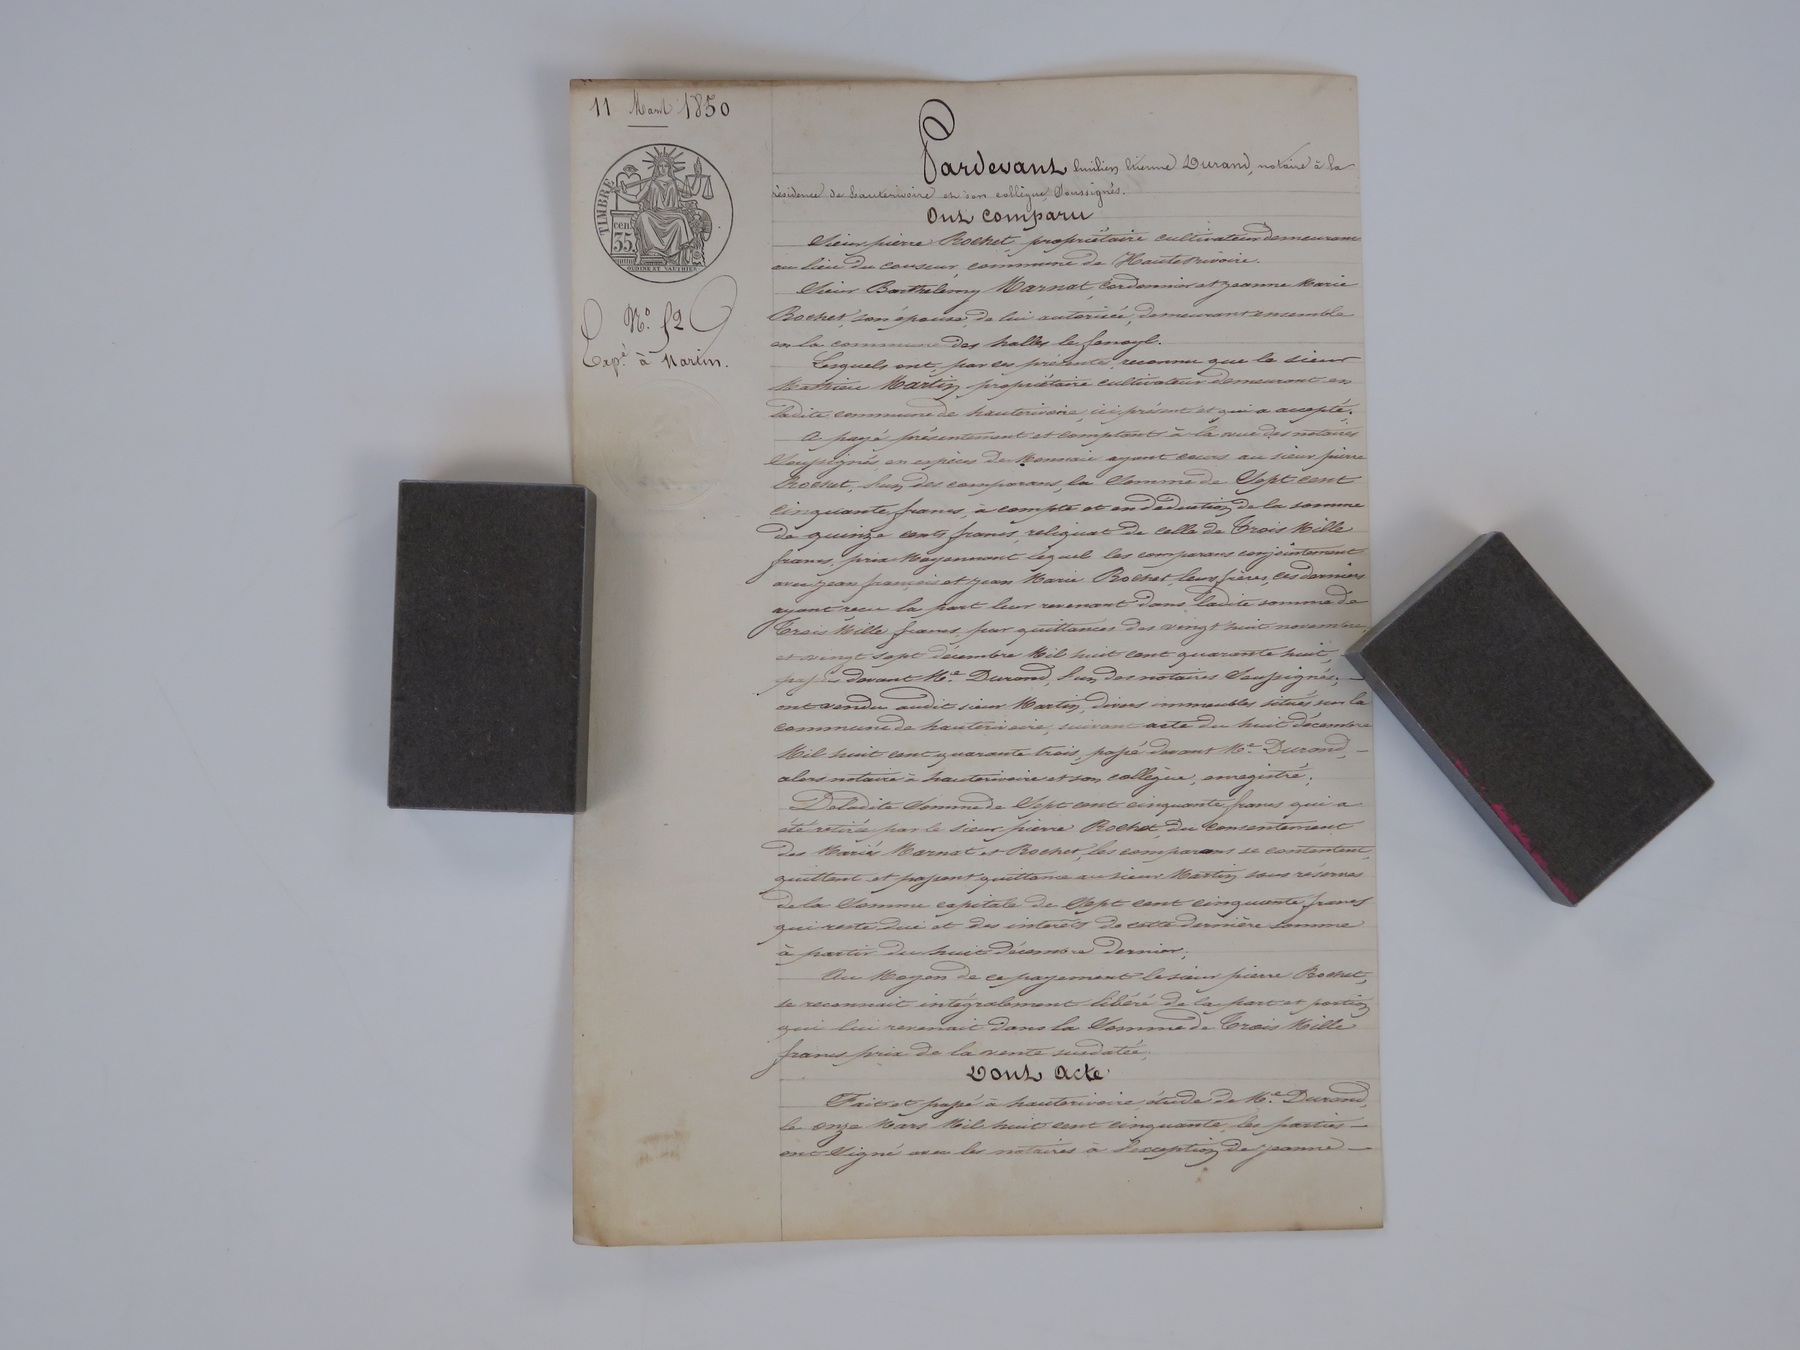 11 Mars 1850
TIMBRE
35 cen
N.° 52
Exp.é à Martin.
Pardevant Emilien Etienne Durand, notaire à la
résidence de hauterivoire et son collègue Soussignés.
Ont comparu
Sieur pierre Rochet, propriétaire cultivateur demeurant
au lieu du commune de Hauterivoire.
Sieur Barthelemy Marnat, Cordonnier et jeanne Marie
Rochet, son épouse, de lui autorisée, demeurant ensemble
en la commune des halles le fenoyl.
Lesquels ont, par ces présentes, reconnu que le sieur
Mathieu Martin, propriétaire cultivateur demeurant en
ladite commune de hauterivoire, ici présent et qui a accepté,
a payé présentement et comptant à la vue des notaires
Soussignés, en espèces de Monnaie ayant cours au sieur pierre
Rochet, l'un des comparans, la Somme de Sept cent
cinquante francs, à compte et en déduction de la somme
de quinze cents francs, reliquat de celle de Trois Mille
francs, prix Moyennant lequel les comparans conjointement
avec jean françois et jean Marie Rochet, leurs frères, ces derniers
ayant recu la part leur revenant dans ladite somme de
Trois Mille francs, par quittances des vingt huit novembre,
et vingt sept décembre Mil huit cent quarante huit,
passées devant M.e Durand, l'un des notaires Soussignés,
ont vendu audit sieur Martin, divers immeubles situés sur la
commune de hauterivoire, suivant acte du huit décembre
Mil huit cent quarante trois, passé devant M.e Durand,
alors notaire à hauterivoire et son collègue, enregistré;
De ladite Somme de Sept cent cinquante francs qui a
été retirée par le sieur pierre Rochet, du consentement
des Mariés Marnat et Rochet, les comparans se contentent,
quittent et passent quittance au sieur Martin, sous réserves
de la Somme capitale de Sept cent cinquante francs
qui reste due et des intérêts de cette dernière somme
à partir du huit décembre dernier.
Au Moyen de ce payement le sieur pierre Rochet,
se reconnait intégralement libéré de la part et portion
qui lui revenait dans la Somme de Trois Mille
francs prix de la vente susdatée.
Dont Acte
Fait et passé à hauterivoire, étude de M.e Durand,
le onze Mars Mil huit cent cinquante, les parties
ont Signé avec les notaires à l'exception de jeanne